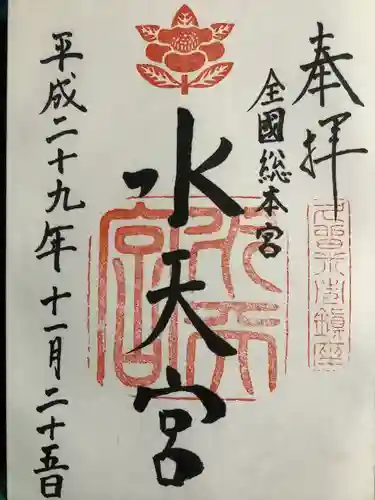 奉拝
全國総本宮
水天宮
平成二十九年十一月二十五日